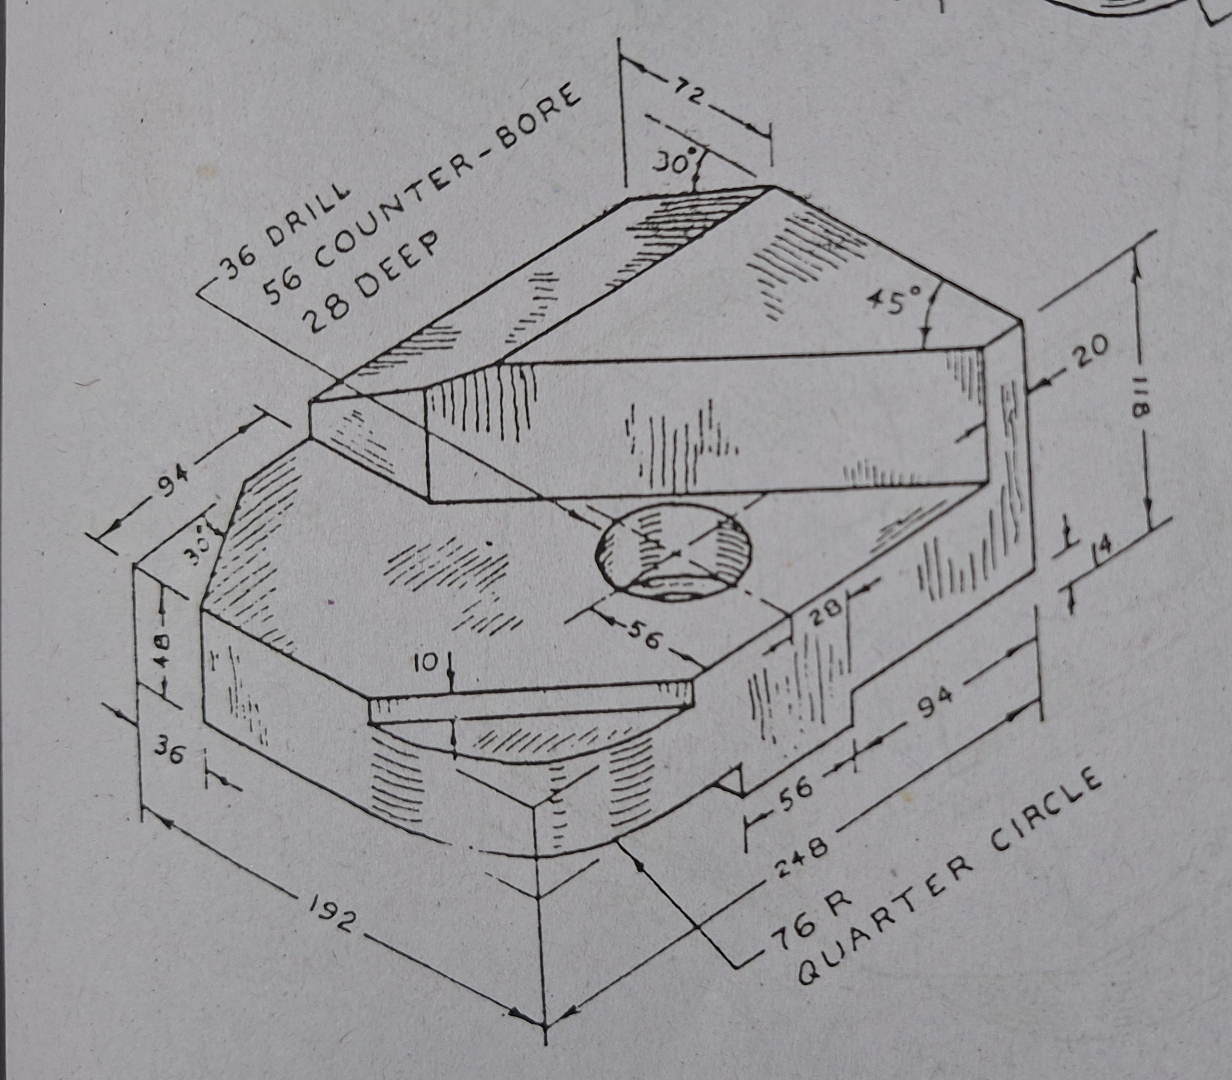 72
30°
36 DRILL
56 COUNTER-BORE
28 DEEP
45°
20
118
94
30°
14
28
56
48
10
94
36
56
248
192
76 R
QUARTER CIRCLE